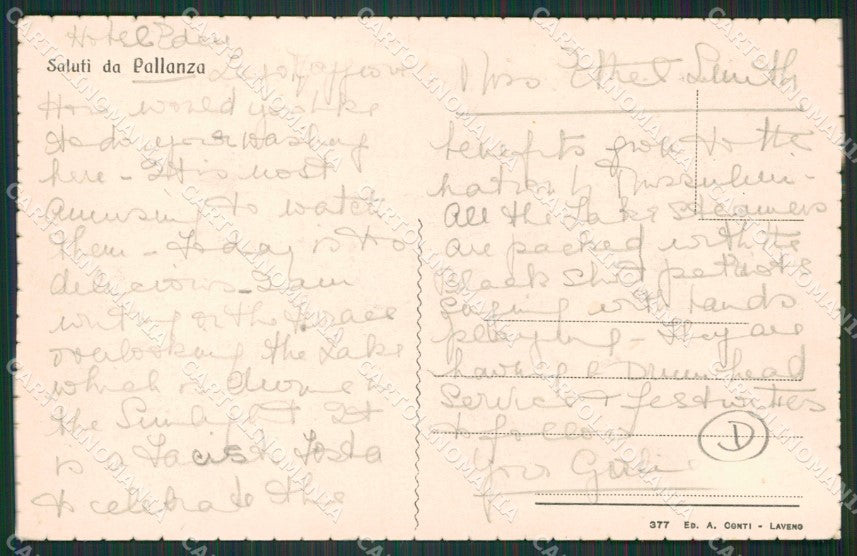 Hotel Eden
Saluti da Pallanza
Lago Maggiore
How would you like
to do your washing
here - It is most
amusing to watch
them - Today is too
delicious - I am
writing on the terrace
overlooking the Lake
which is divine in
the Sunlight It
is a Facist Festa
to celebrate the
Miss Ethel Smith
benefits given to the
nation by Mussolini -
All the Lake Steamers
are packed with the
Black Shirt patriots
singing with bands
playing - They are
having a Drumhead
Service & festivities
to follow
Yrs
D
377 ED. A. CONTI - LAVENO
CARTOLINOMANIA